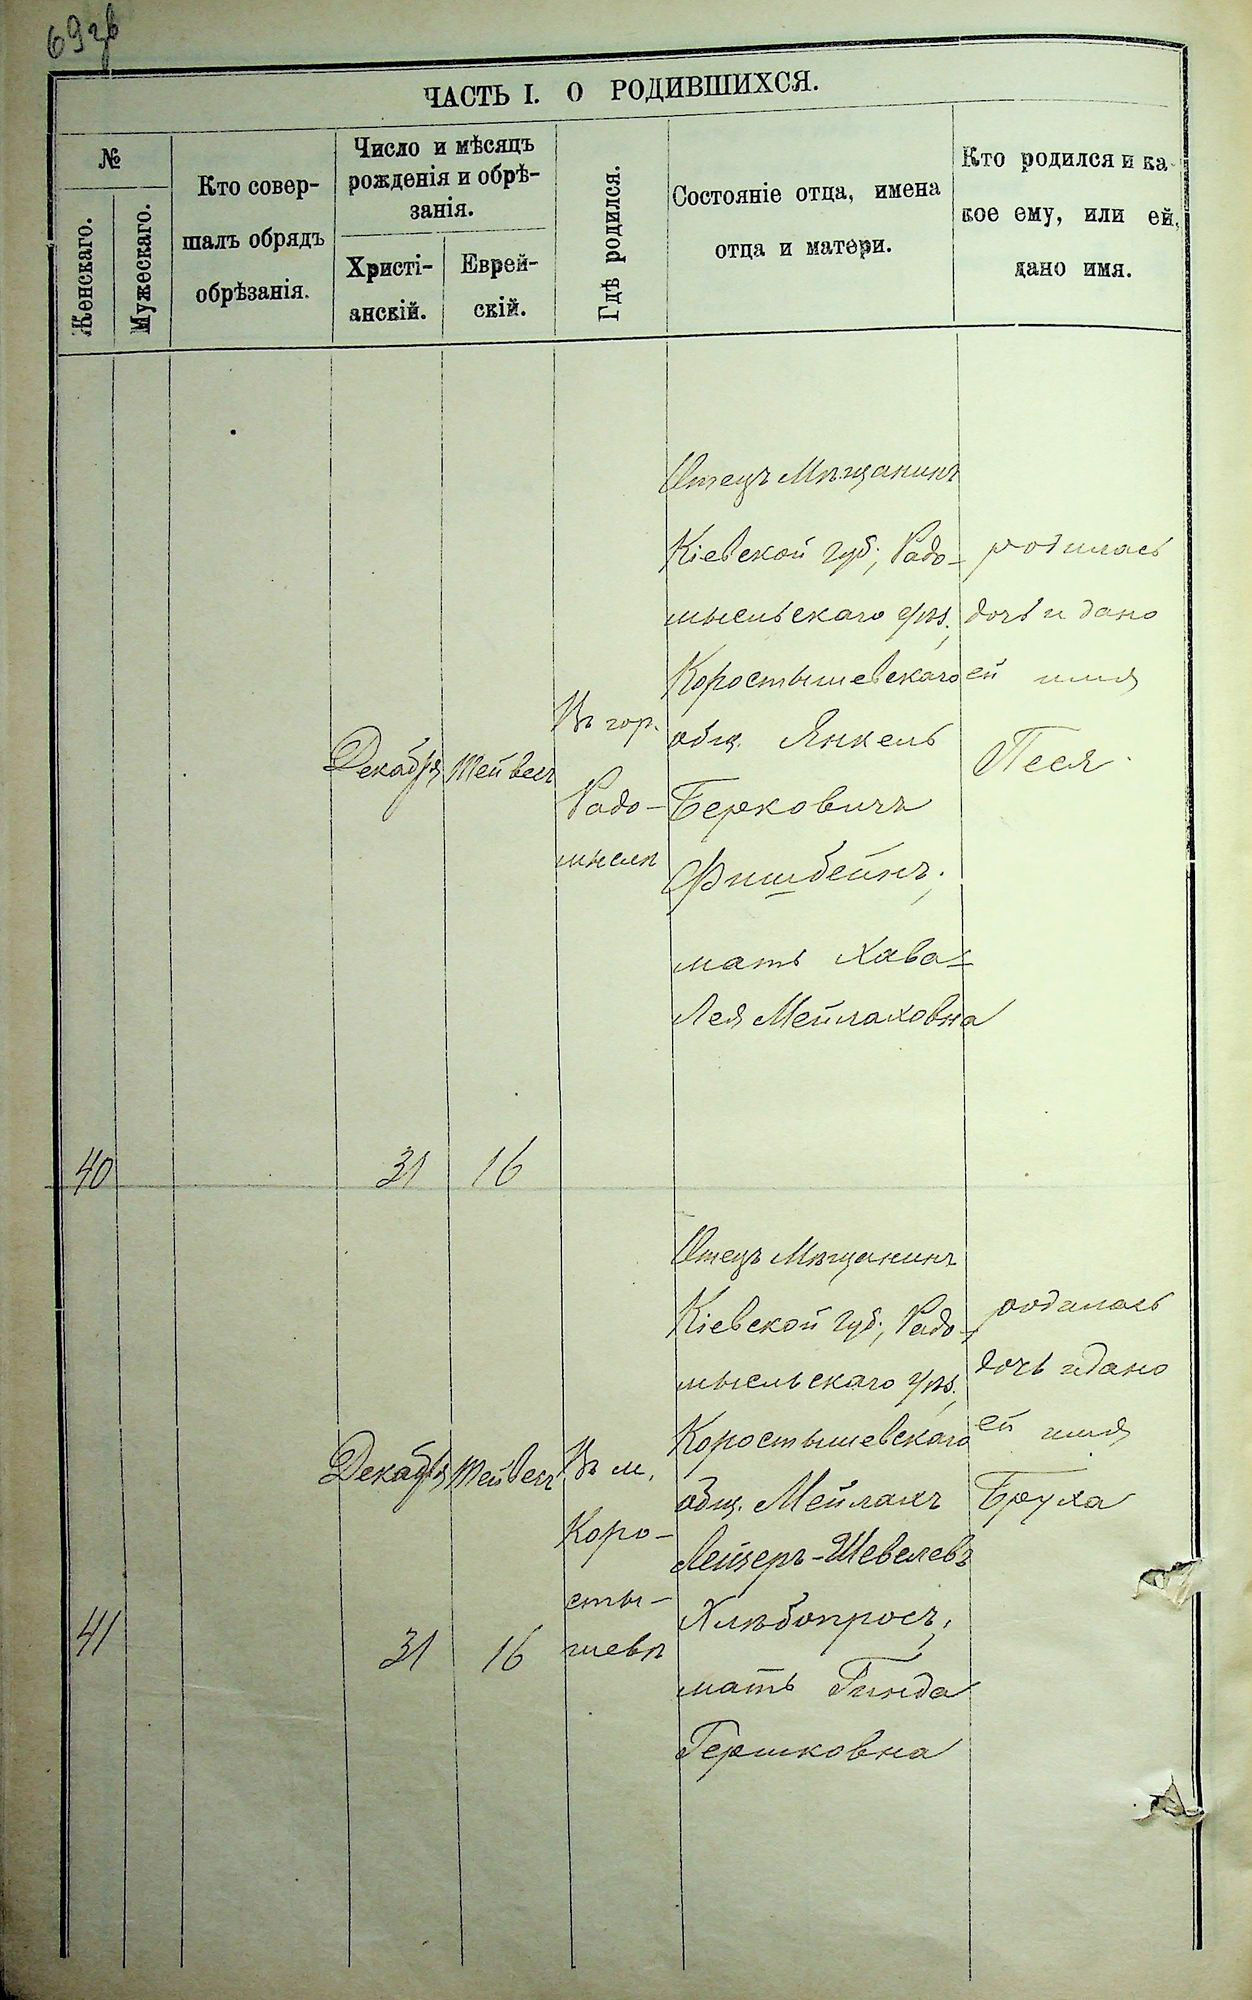 69 зв
ЧАСТЬ I. О РОДИВШИХСЯ.
№
Женскаго.
Мужескаго.
Кто совер-
шалъ обрядъ
обрѣзанія.
Число и мѣсяцъ
рожденія и обрѣ-
занія.
Христі-
анскій.
Еврей-
скій.
Гдѣ родился.
Состояніе отца, имена
отца и матери.
Кто родился и ка-
кое ему, или ей,
дано имя.
40
Декабря
31
Тейвесъ
16
Въ гор.
Радо-
мыслѣ
Отецъ Мѣщанинъ
Кіевской губ., Радо-
мысльскаго уѣз.,
Коростышевскаго
общ. Янкель
Берковичъ
Фишбейнъ,
мать Хава-
Лея Мейлаховна
родилась
дочь и дано
ей имя
Песя.
41
Декабря
31
Тейвесъ
16
Въ м.
Коро-
сты-
шевѣ
Отецъ Мѣщанинъ
Кіевской губ., Радо-
мысльскаго уѣз.,
Коростышевскаго
общ. Мейлахъ
Лейзеръ-Шевелевъ
Хлѣбопросъ,
мать Гинда
Гершковна
родилась
дочь и дано
ей имя
Бруха